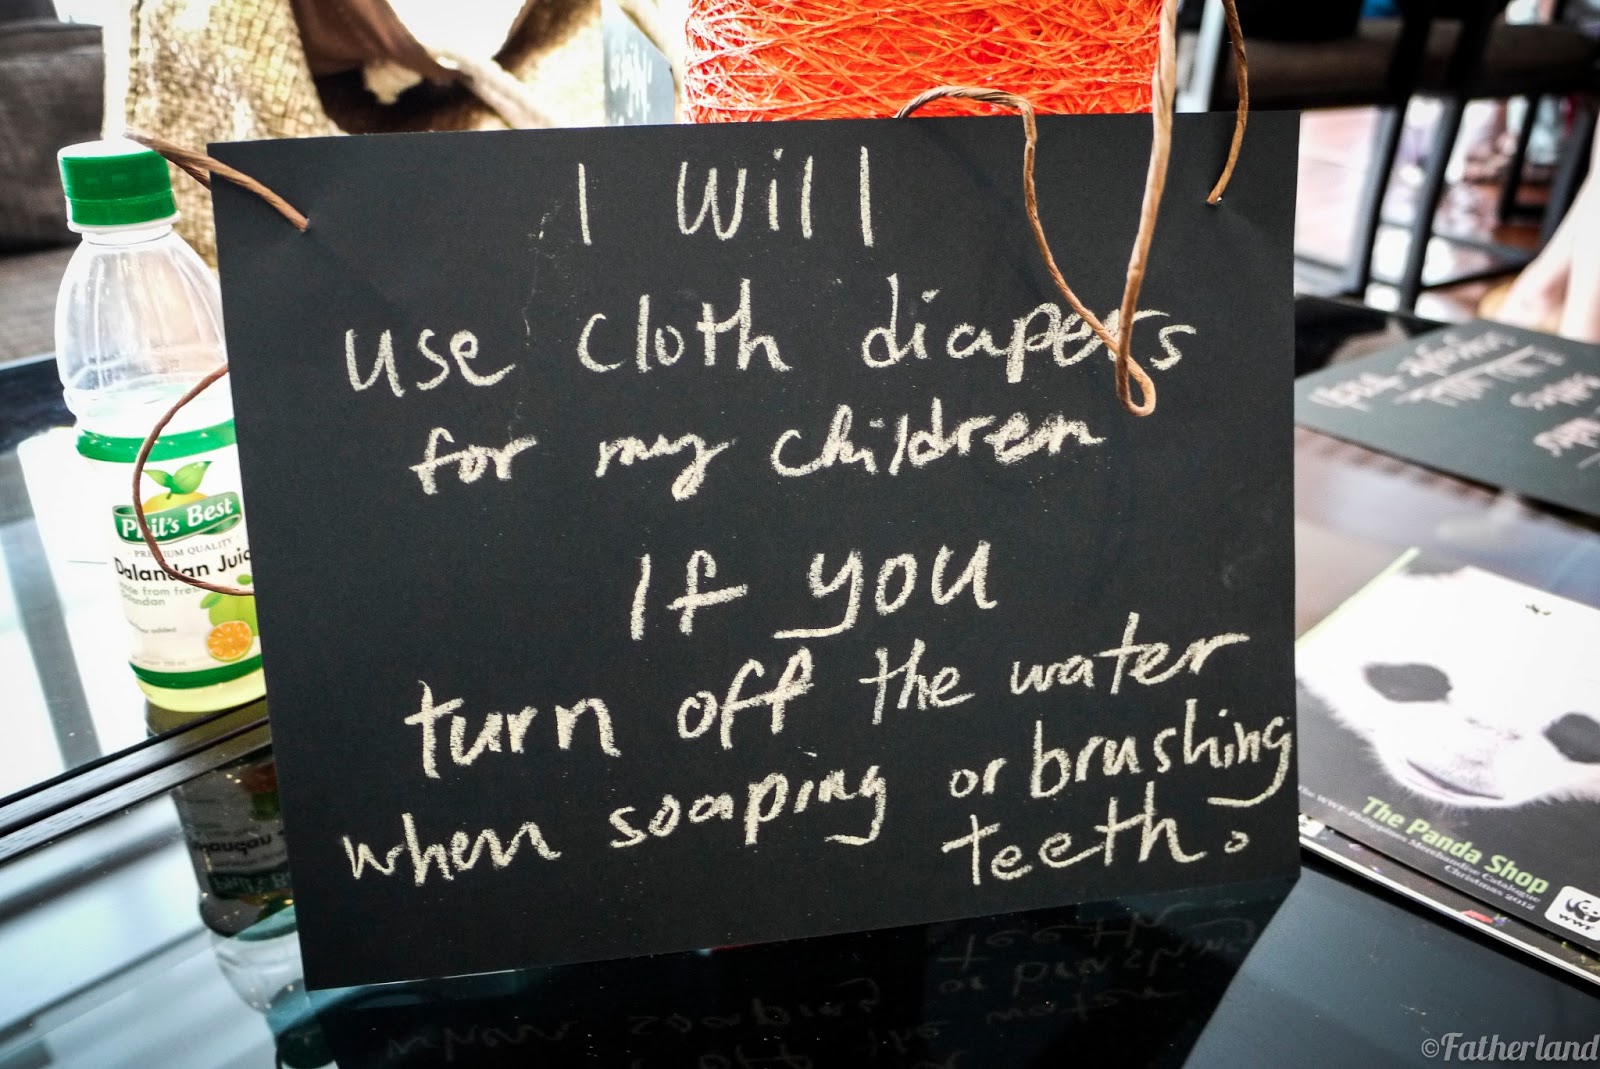 I will
use cloth diapers
for my children
If you
turn off the water
when soaping or brushing
teeth.
Phil's Best
PREMIUM QUALITY
Dalandan Juic
made from fres
dalandan
The Panda Shop
The WWF-Philippines Merchandise Catalogue
Christmas 2012
WWF
©Fatherland